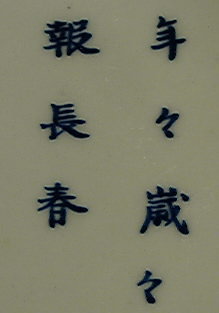 年々歳々
報長春